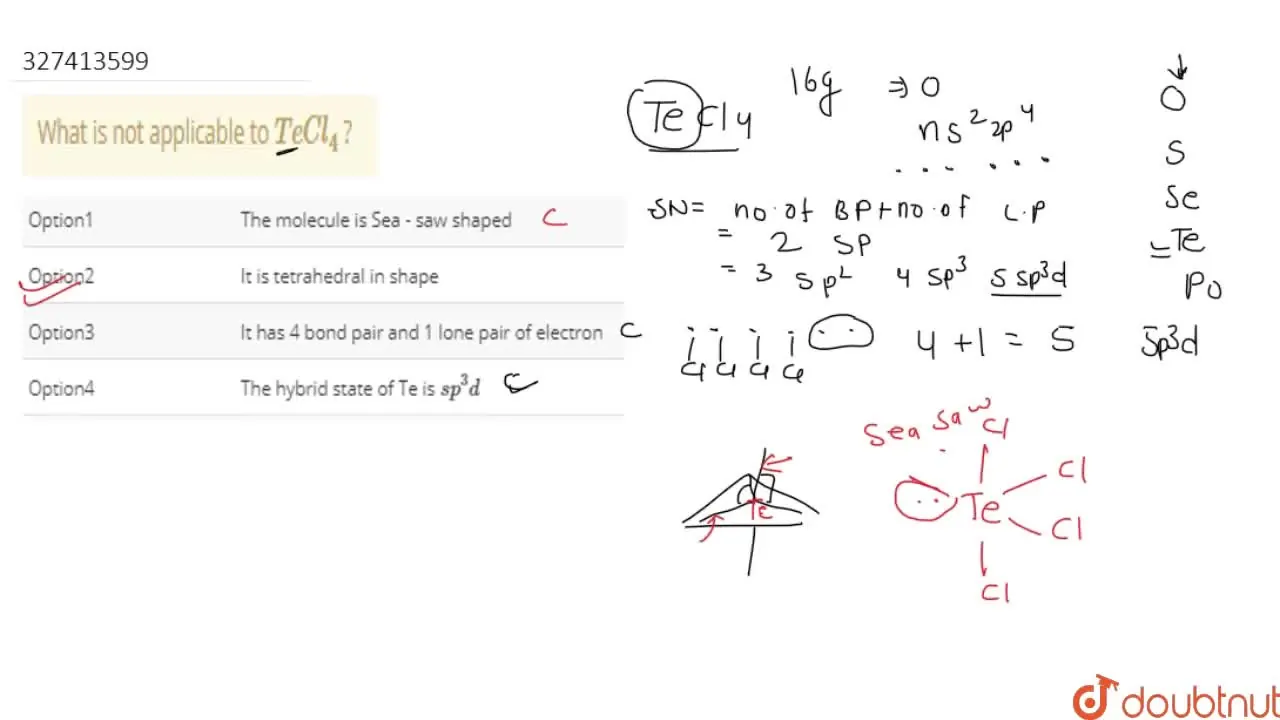 327413599
What is not applicable to TeCl₄ ?
Option1 The molecule is Sea - saw shaped C
Option2 It is tetrahedral in shape
Option3 It has 4 bond pair and 1 lone pair of electron C
Option4 The hybrid state of Te is sp³d C
TeCl4 16g ⇒ O
ns² np⁴
SN = no. of BP + no. of L.P
= 2 SP
= 3 Sp² 4 Sp³ 5 sp³d
Cl Cl Cl Cl 4 + 1 = 5 Sp³d
O
S
Se
Te
Po
Sea Saw
Te
Cl
Cl
Te
Cl
Cl
doubtnut